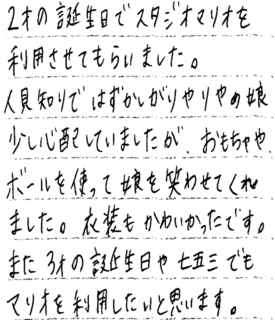 2才の誕生日でスタジオマリオを
利用させてもらいました。
人見知りではずかしがりやりやの娘
少し心配していましたが、おもちゃや
ボールを使って娘を笑わせてくれ
ました。衣装もかわいかったです。
また3才の誕生日や七五三でも
マリオを利用したいと思います。